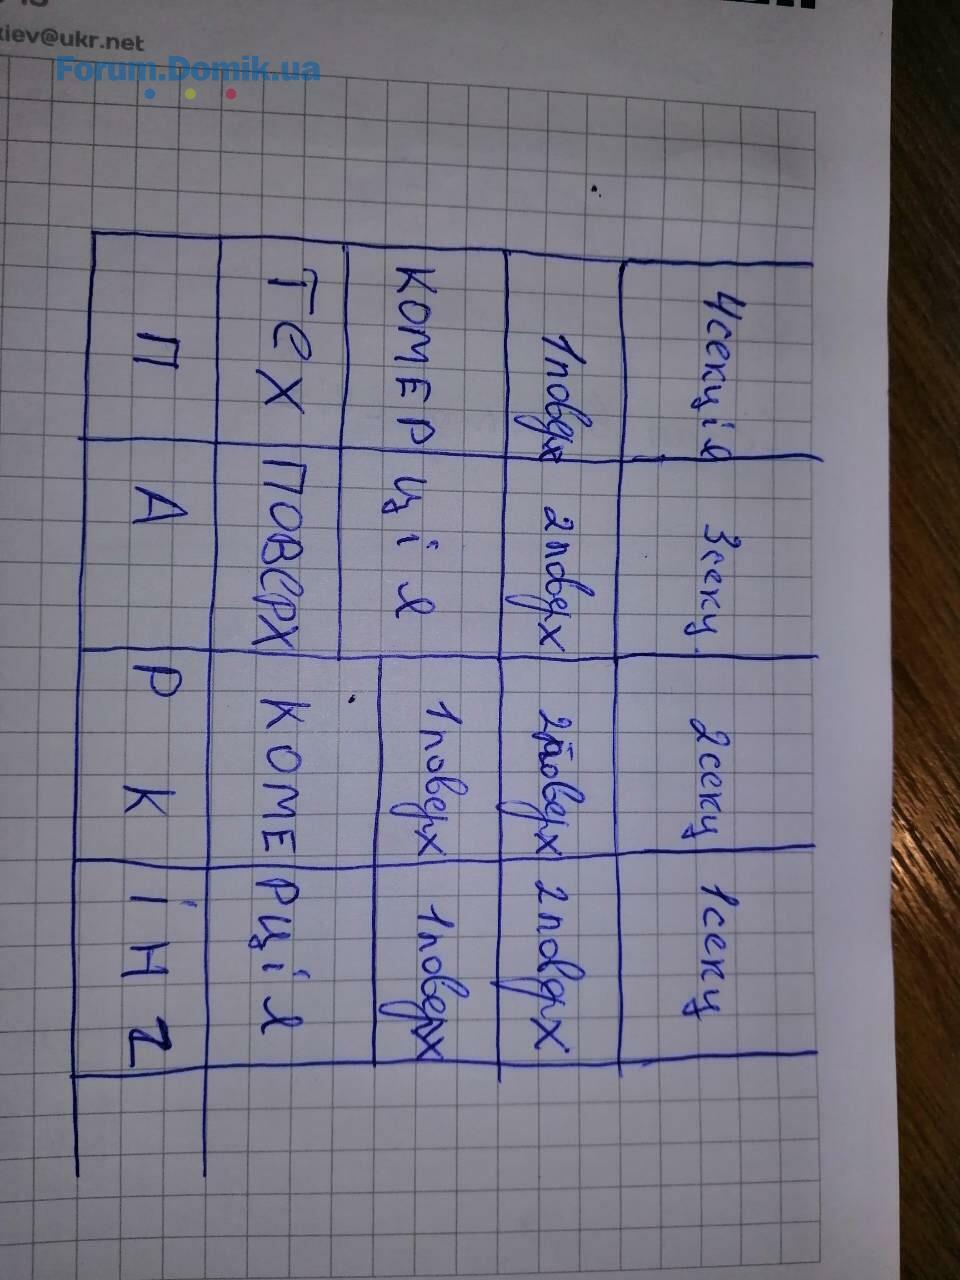 kiev@ukr.net
Forum.Domik.ua
4 секція 3 секц. 2 секц 1 секц
1 поверх 2 поверх 2 поверх 2 поверх
КОМЕРЦІЯ 1 поверх 1 поверх
ТЕХ ПОВЕРХ КОМЕРЦІЯ
ПАРКІНГ